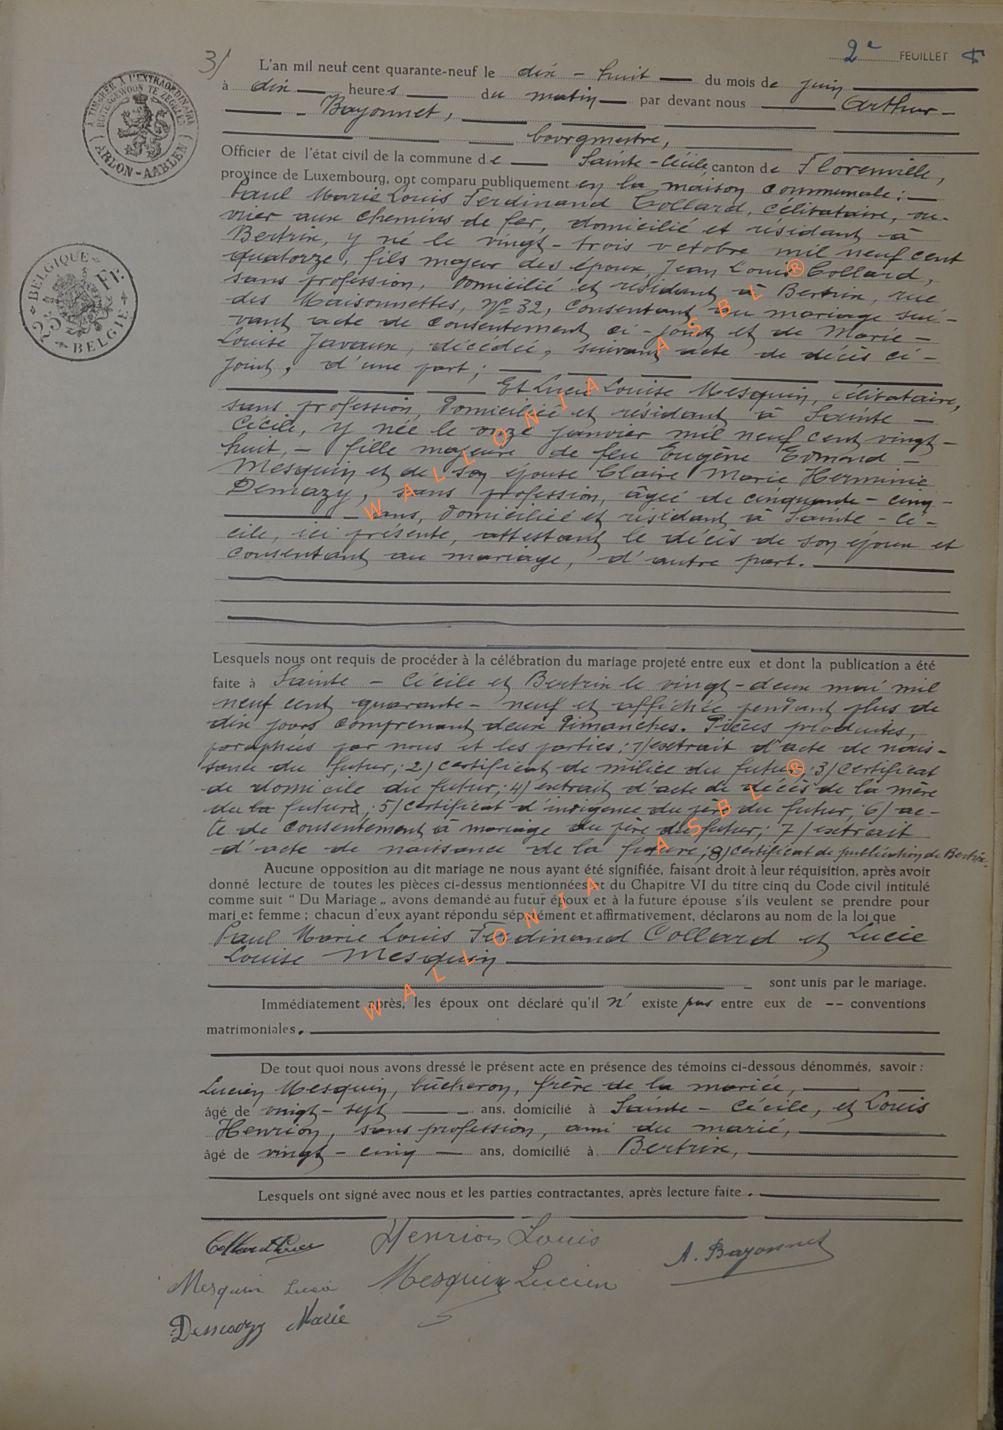 2e FEUILLET
3/
L'an mil neuf cent quarante-neuf le dix-huit du mois de juin
à dix heures du matin par devant nous Arthur
Bayonnet,
bourgmestre,
Officier de l'état civil de la commune de Sainte-Cécile, canton de Florenville,
province de Luxembourg, ont comparu publiquement en la maison communale :
Paul Marie Louis Ferdinand Collard, célibataire, ou-
vrier aux chemins de fer, domicilié et résidant à
Bertrix, y né le vingt-trois octobre mil neuf cent
quatorze, fils majeur des époux, Jean Louis Collard,
sans profession, domicilié et résidant à Bertrix, rue
des Maisonnettes, N° 32, consentant au mariage sui-
vant acte de consentement ci-joint et de Marie-
Louise Javaux, décédée, suivant acte de décès ci-
joint, d'une part ;
Et Lucie Louise Mesquin, célibataire,
sans profession, domiciliée et résidant à Sainte-
Cécile, y née le onze janvier mil neuf cent vingt-
huit, fille majeure de feu Eugène Edmond
Mesquin et de son épouse Claire Marie Herminie
Demazy, sans profession, âgée de cinquante-cinq
ans, domiciliée et résidant à Sainte-Cé-
cile, ici présente, attestant le décès de son époux et
consentant au mariage, d'autre part.
Lesquels nous ont requis de procéder à la célébration du mariage projeté entre eux et dont la publication a été
faite à Sainte-Cécile et Bertrix le vingt-deux mai mil
neuf cent quarante-neuf et affichée pendant plus de
dix jours comprenant deux dimanches. Pièces produites,
paraphées par nous et les parties : 1) extrait d'acte de nais-
sance du futur, ; 2) certificat de milice du futur, ; 3) certificat
de domicile du futur, ; 4) extrait d'acte de décès de la mère
du la future, ; 5) certificat d'indigence du père du futur, 6) ac-
te de consentement à mariage du père du futur ; 7) extrait
d'acte de naissance de la future ; 8) certificat de publication de Bertrix.
Aucune opposition au dit mariage ne nous ayant été signifiée, faisant droit à leur réquisition, après avoir
donné lecture de toutes les pièces ci-dessus mentionnées et du Chapitre VI du titre cinq du Code civil intitulé
comme suit " Du Mariage „ avons demandé au futur époux et à la future épouse s'ils veulent se prendre pour
mari et femme ; chacun d'eux ayant répondu séparément et affirmativement, déclarons au nom de la loi que
Paul Marie Louis Ferdinand Collard et Lucie
Louise Mesquin
sont unis par le mariage.
Immédiatement après, les époux ont déclaré qu'il n'existe pas entre eux de -- conventions
matrimoniales.
De tout quoi nous avons dressé le présent acte en présence des témoins ci-dessous dénommés, savoir :
Lucien Mesquin, bûcheron, frère de la mariée,
âgé de vingt-sept ans, domicilié à Sainte-Cécile, et Louis
Henrion, sans profession, ami du marié,
âgé de vingt-cinq ans, domicilié à Bertrix,
Lesquels ont signé avec nous et les parties contractantes, après lecture faite.
Henrion Louis
A. Bayonnet
Mesquin Lucie Mesquin Lucien
Demazy Marie
TIMBRÉ A L'EXTRAORDINAIRE
BUITENGEWOON TE ZEGELEN
ARLON-AARLEN
BELGIQUE
BELGIË
WALLONIA ASBL ®
WALLONIA ASBL ®